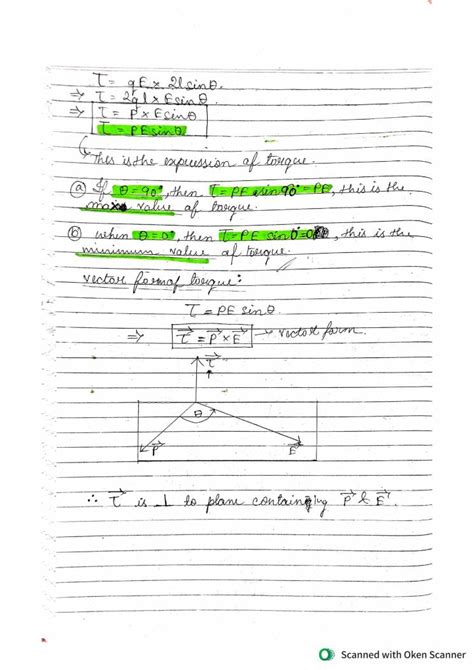 τ = qE × 2l sinθ.
⇒ τ = 2ql × E sinθ
⇒ τ = P × E sinθ
τ = PE sinθ
This is the expression of torque.
(a) If θ = 90°, then τ = PE sin 90° = PE, this is the
max value of torque.
(b) when θ = 0°, then τ = PE sin 0° = 0, this is the
minimum value of torque.
vector form of torque:
τ = PE sinθ
⇒ τ⃗ = P⃗ × E⃗ → vector form.
τ⃗
θ
P⃗ E⃗
∴ τ⃗ is ⊥ to plane containing P⃗ & E⃗.
Scanned with Oken Scanner